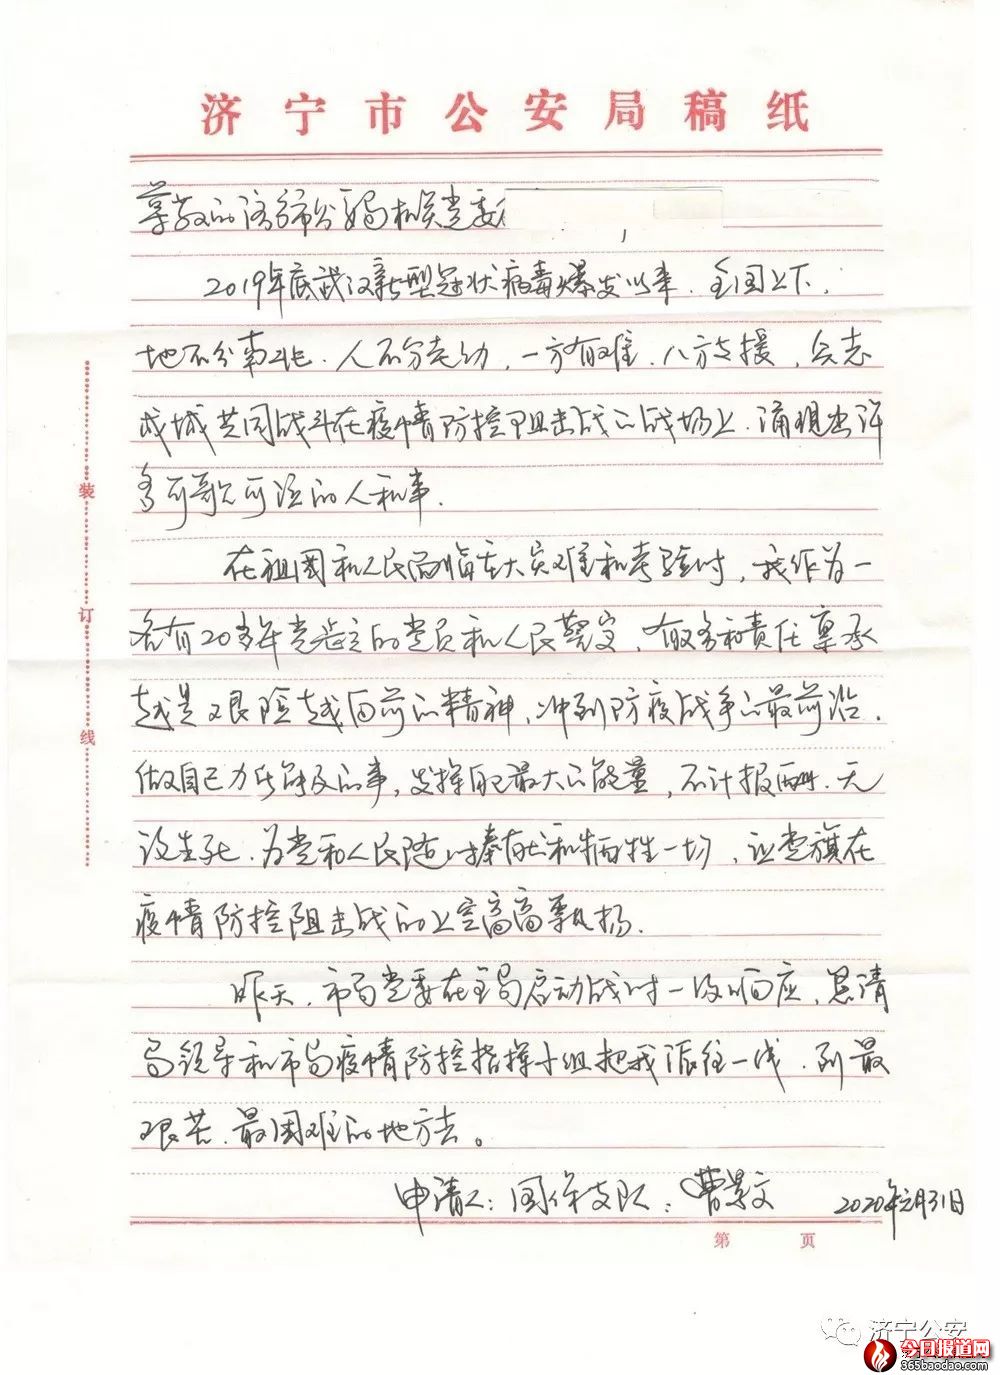 济宁市公安局稿纸
尊敬的济宁市公安局机关党委
2019年底武汉新型冠状病毒爆发以来，全国上下，
地不分南北，人不分老幼，一方有难，八方支援，众志
成城共同战斗在疫情防控阻击战的战场上，涌现出许
多可歌可泣的人和事。
在祖国和人民面临重大灾难和考验时，我作为一
名有20多年党龄的党员和人民警察，有义务和责任秉承
越是艰险越向前的精神，冲到防疫战争的最前沿，
做自己力所能及的事，发挥自己最大的能量，不计报酬、无
论生死，为党和人民随时奉献和牺牲一切，让党旗在
疫情防控阻击战的上空高高飘扬。
昨天，市局党委在全局启动战时一级响应，恳请
局领导和市局疫情防控指挥小组把我派往一线，到最
艰苦、最困难的地方去。
申请人：国保支队：曹景文 2020年元月31日
装
订
线
第 页
济宁公安
今日报道网
365baodao.com